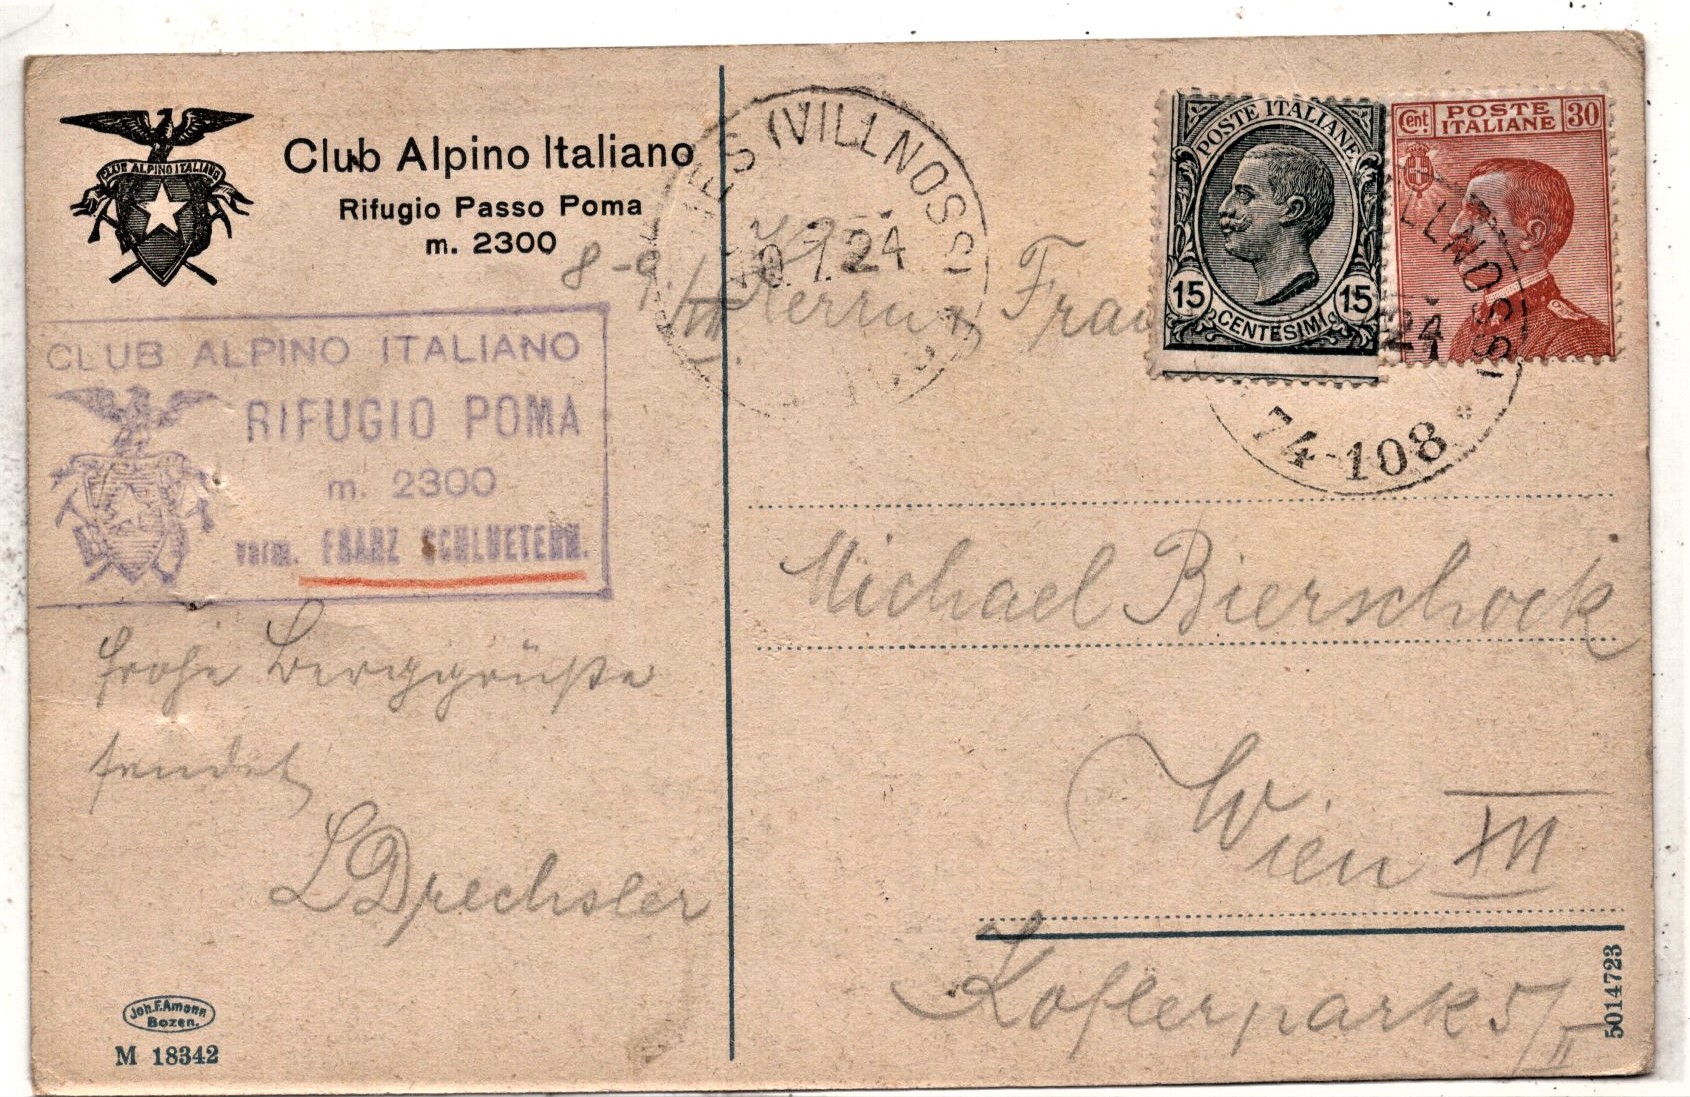 CLUB ALPINO ITALIANO
Club Alpino Italiano
Rifugio Passo Poma
m. 2300
8-9./VII.
CLUB ALPINO ITALIANO
RIFUGIO POMA
m. 2300
vorm. FRANZ SCHLUETERH.
frohe Berggrüße
sendet
L Drechsler
Joh. F. Amonn
Bozen.
M 18342
ES (VILLNOSS)
7.24
POSTE ITALIANE
15 15
CENTESIMI
Cent. POSTE ITALIANE 30
LLNOSS
24
74-108
Herrn Frau
Michael Bierschock
Wien
Koflerpark 5/II
5014723